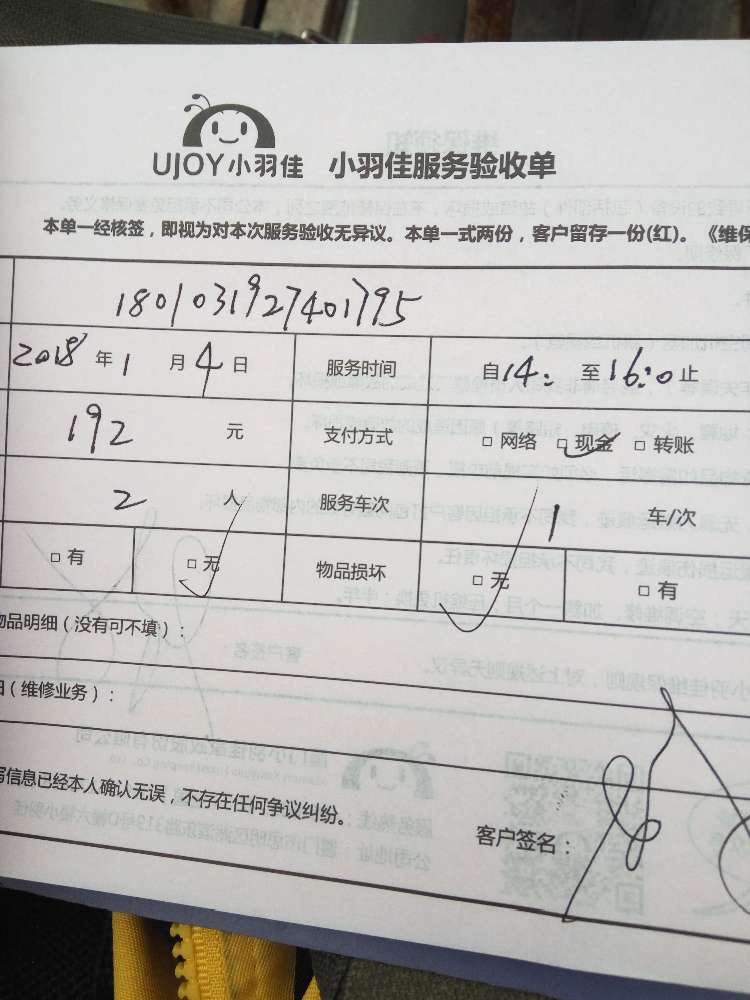 UJOY小羽佳 小羽佳服务验收单
本单一经核签，即视为对本次服务验收无异议。本单一式两份，客户留存一份(红)。《维保
1801031927401795
2018年1月4日 服务时间 自14: 至16:0止
192 元 支付方式 □ 网络 □ 现金 □ 转账
2 人 服务车次 1 车/次
□ 有 □ 无 物品损坏 □ 无 □ 有
物品明细（没有可不填）：
（维修业务）：
写信息已经本人确认无误，不存在任何争议纠纷。
客户签名：